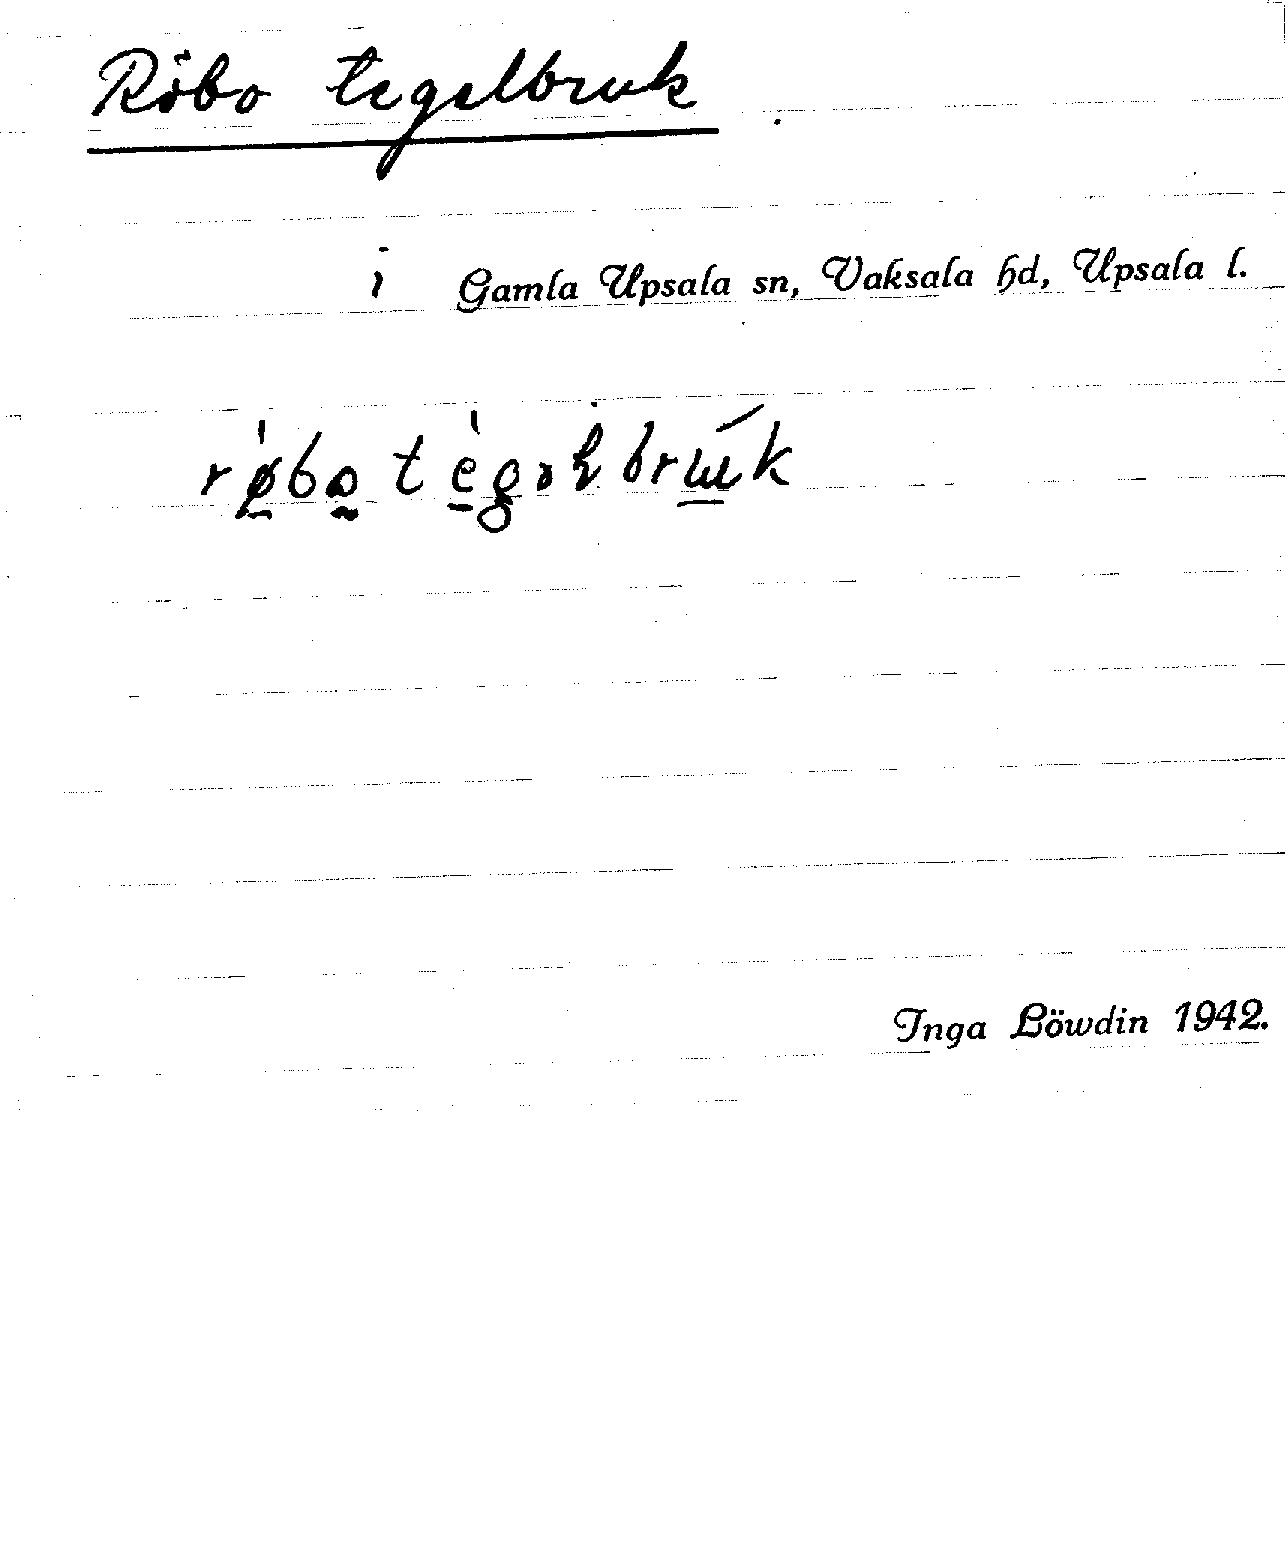 Röbo tegelbruk
i Gamla Upsala sn, Vaksala hd, Upsala l.
Inga Löwdin 1942.